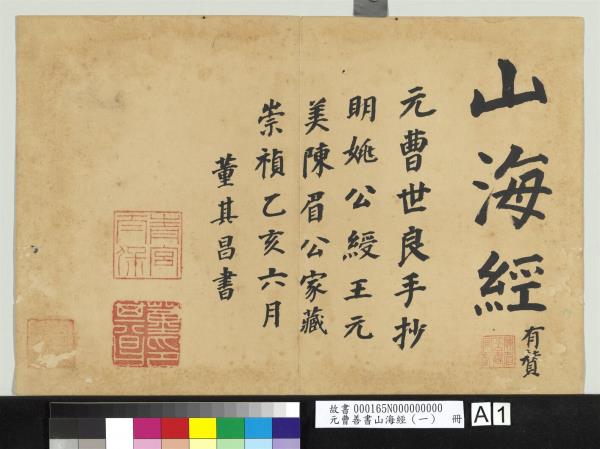 山海經
有贊
元曹世良手抄
明姚公綬王元
美陳眉公家藏
崇禎乙亥六月
董其昌書
故書 000165N000000000
元曹善書山海經(一) 冊
A 1